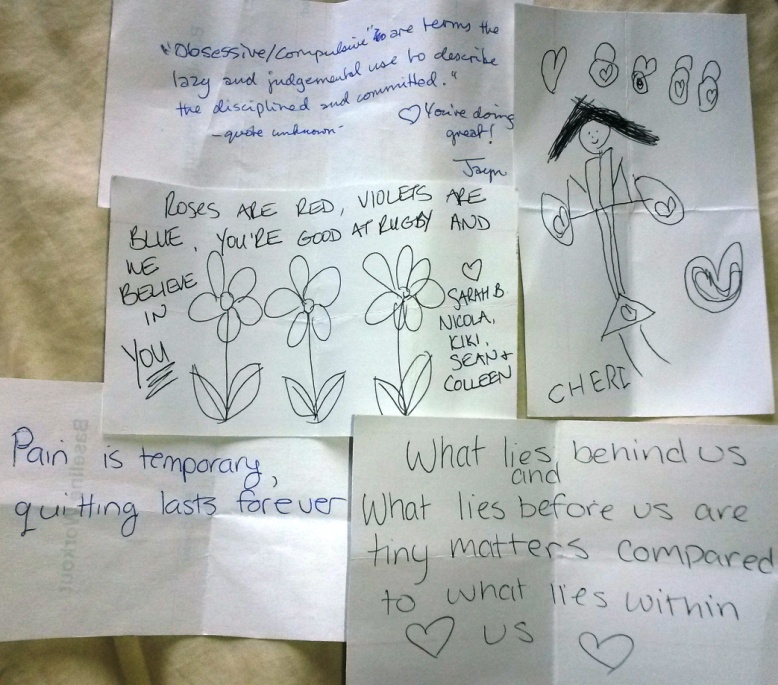 "Obsessive/Compulsive" are terms the
lazy and judgemental use to describe
the disciplined and committed."
-quote unknown-
♡ You're doing
great!
Jacyn
ROSES ARE RED, VIOLETS ARE
BLUE, YOU'RE GOOD AT RUGBY AND
WE
BELIEVE
IN
YOU
♡
SARAH B
NICOLA,
KIKI,
SEAN +
COLLEEN
CHERI
Pain is temporary,
quitting lasts forever
Baseline Workout
What lies behind us
and
What lies before us are
tiny matters compared
to what lies within
♡ us ♡